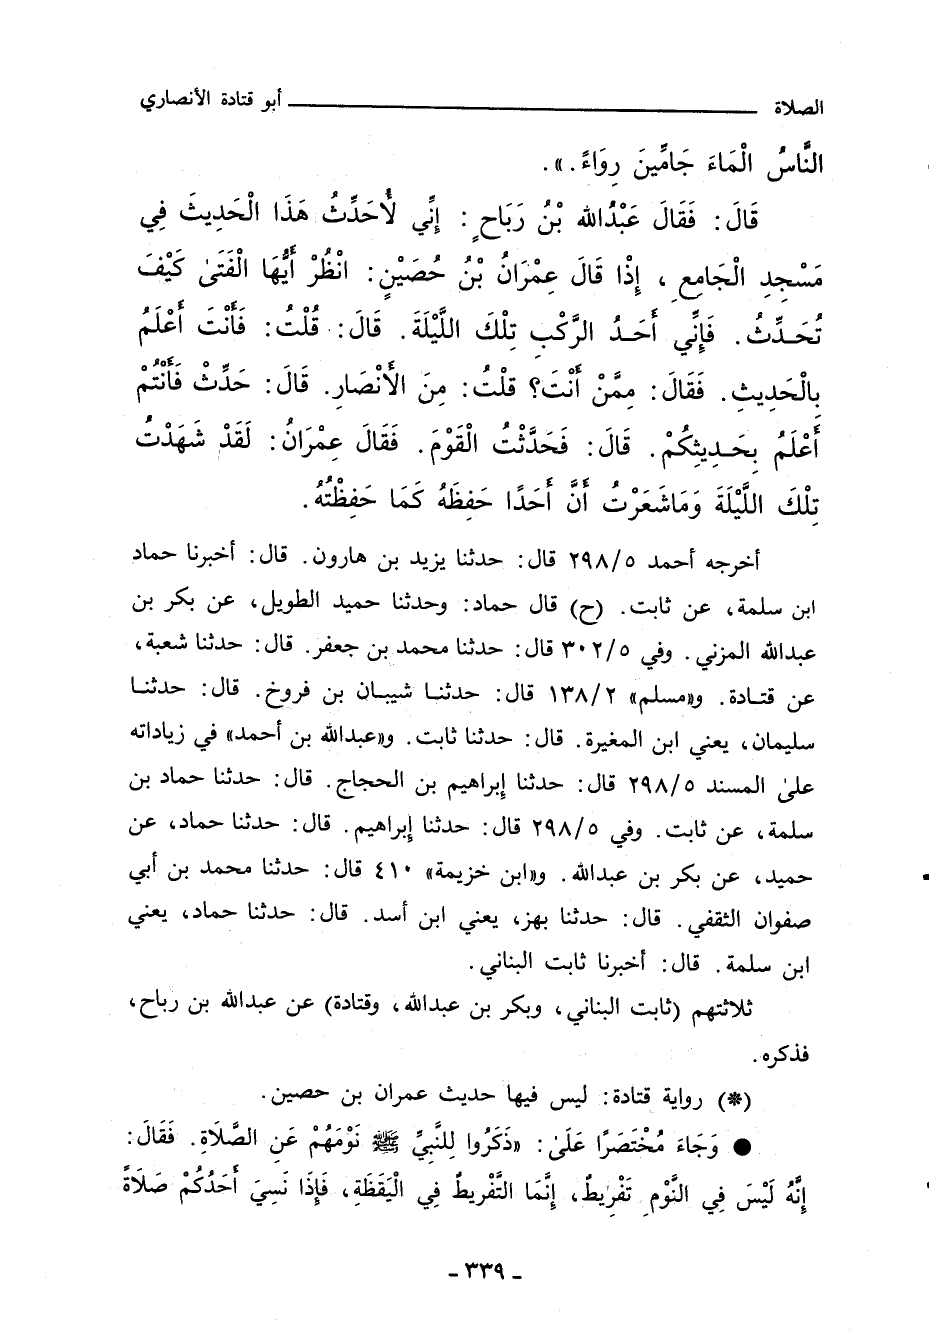 الصلاة ــــــــــــــــ أبو قتادة الأنصاري
النَّاسُ الْمَاءَ جَامِّينَ رِوَاءً. ».
قَالَ: فَقَالَ عَبْدُالله بْنُ رَبَاحٍ: إِنِّي لَأُحَدِّثُ هَذَا الْحَدِيثَ فِي
مَسْجِدِ الْجَامِعِ ، إِذْا قَالَ عِمْرَانُ بْنُ حُصَيْنٍ: انْظُرْ أَيُّهَا الْفَتَىٰ كَيْفَ
تُحَدِّثُ. فَإِنِّي أَحَدُ الرَّكْبِ تِلْكَ اللَّيْلَةَ. قَالَ: قُلْتُ: فَأَنْتَ أَعْلَمُ
بِالْحَدِيثِ. فَقَالَ: مِمَّنْ أَنْتَ؟ قلْتُ: مِنَ الأَنْصَارِ. قَالَ: حَدِّثْ فَأَنْتُمْ
أَعْلَمُ بِحَدِيثِكُمْ. قَالَ: فَحَدَّثْتُ الْقَوْمَ. فَقَالَ عِمْرَانُ: لَقَدْ شَهَدْتُ
تِلْكَ اللَّيْلَةَ وَمَاشَعَرْتُ أَنَّ أَحَدًا حَفِظَهُ كَمَا حَفِظْتُهُ.
أخرجه أحمد ٢٩٨/٥ قال: حدثنا يزيد بن هارون. قال: أخبرنا حماد
ابن سلمة، عن ثابت. (ح) قال حماد: وحدثنا حميد الطويل، عن بكر بن
عبدالله المزني. وفي ٣٠٢/٥ قال: حدثنا محمد بن جعفر. قال: حدثنا شعبة،
عن قتادة. و«مسلم» ١٣٨/٢ قال: حدثنا شيبان بن فروخ. قال: حدثنا
سليمان، يعني ابن المغيرة. قال: حدثنا ثابت. و«عبدالله بن أحمد» في زياداته
علىٰ المسند ٢٩٨/٥ قال: حدثنا إبراهيم بن الحجاج. قال: حدثنا حماد بن
سلمة، عن ثابت. وفي ٢٩٨/٥ قال: حدثنا إبراهيم. قال: حدثنا حماد، عن
حميد، عن بكر بن عبدالله. و«ابن خزيمة» ٤١٠ قال: حدثنا محمد بن أبي
صفوان الثقفي. قال: حدثنا بهز، يعني ابن أسد. قال: حدثنا حماد، يعني
ابن سلمة. قال: أخبرنا ثابت البناني.
ثلاثتهم (ثابت البناني، وبكر بن عبدالله، وقتادة) عن عبدالله بن رباح،
فذكره.
(*) رواية قتادة: ليس فيها حديث عمران بن حصين.
● وَجَاءَ مُخْتَصَرًا عَلَىٰ: «ذَكَرُوا لِلنَّبِيِّ ﷺ نَوْمَهُمْ عَنِ الصَّلَاةِ. فَقَالَ:
إِنَّهُ لَيْسَ فِي النَّوْمِ تَفْرِيطٌ، إِنَّمَا التَّفْرِيطُ فِي الْيَقَظَةِ، فَإِذَا نَسِيَ أَحَدُكُمْ صَلَاةً
- ٣٣٩ -